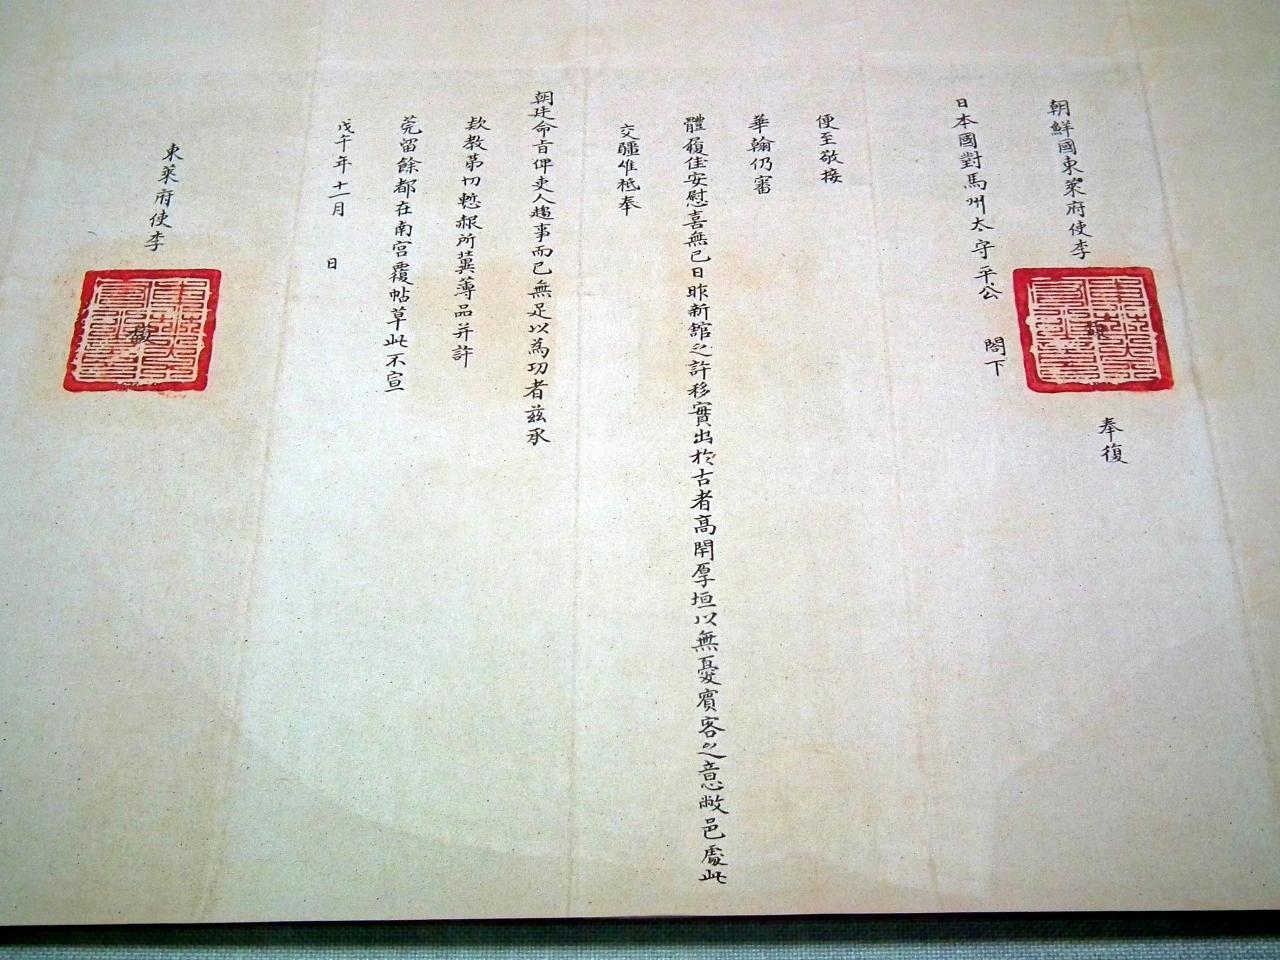 朝鮮國東萊府使李 奉復
日本國對馬州太守平公 閤下
便至敬接
華翰仍審
體履佳安慰喜無已日昨新館之許移實出於古者高閈厚垣以無憂賓客之意敝邑處此
交疆惟祗奉
朝廷命旨俾吏人趨事而已無足以為功者茲承
款教第切慙赧所蕆薄品并許
莞留餘都在南宮覆帖草此不宣
戊午年十一月 日
東萊府使李